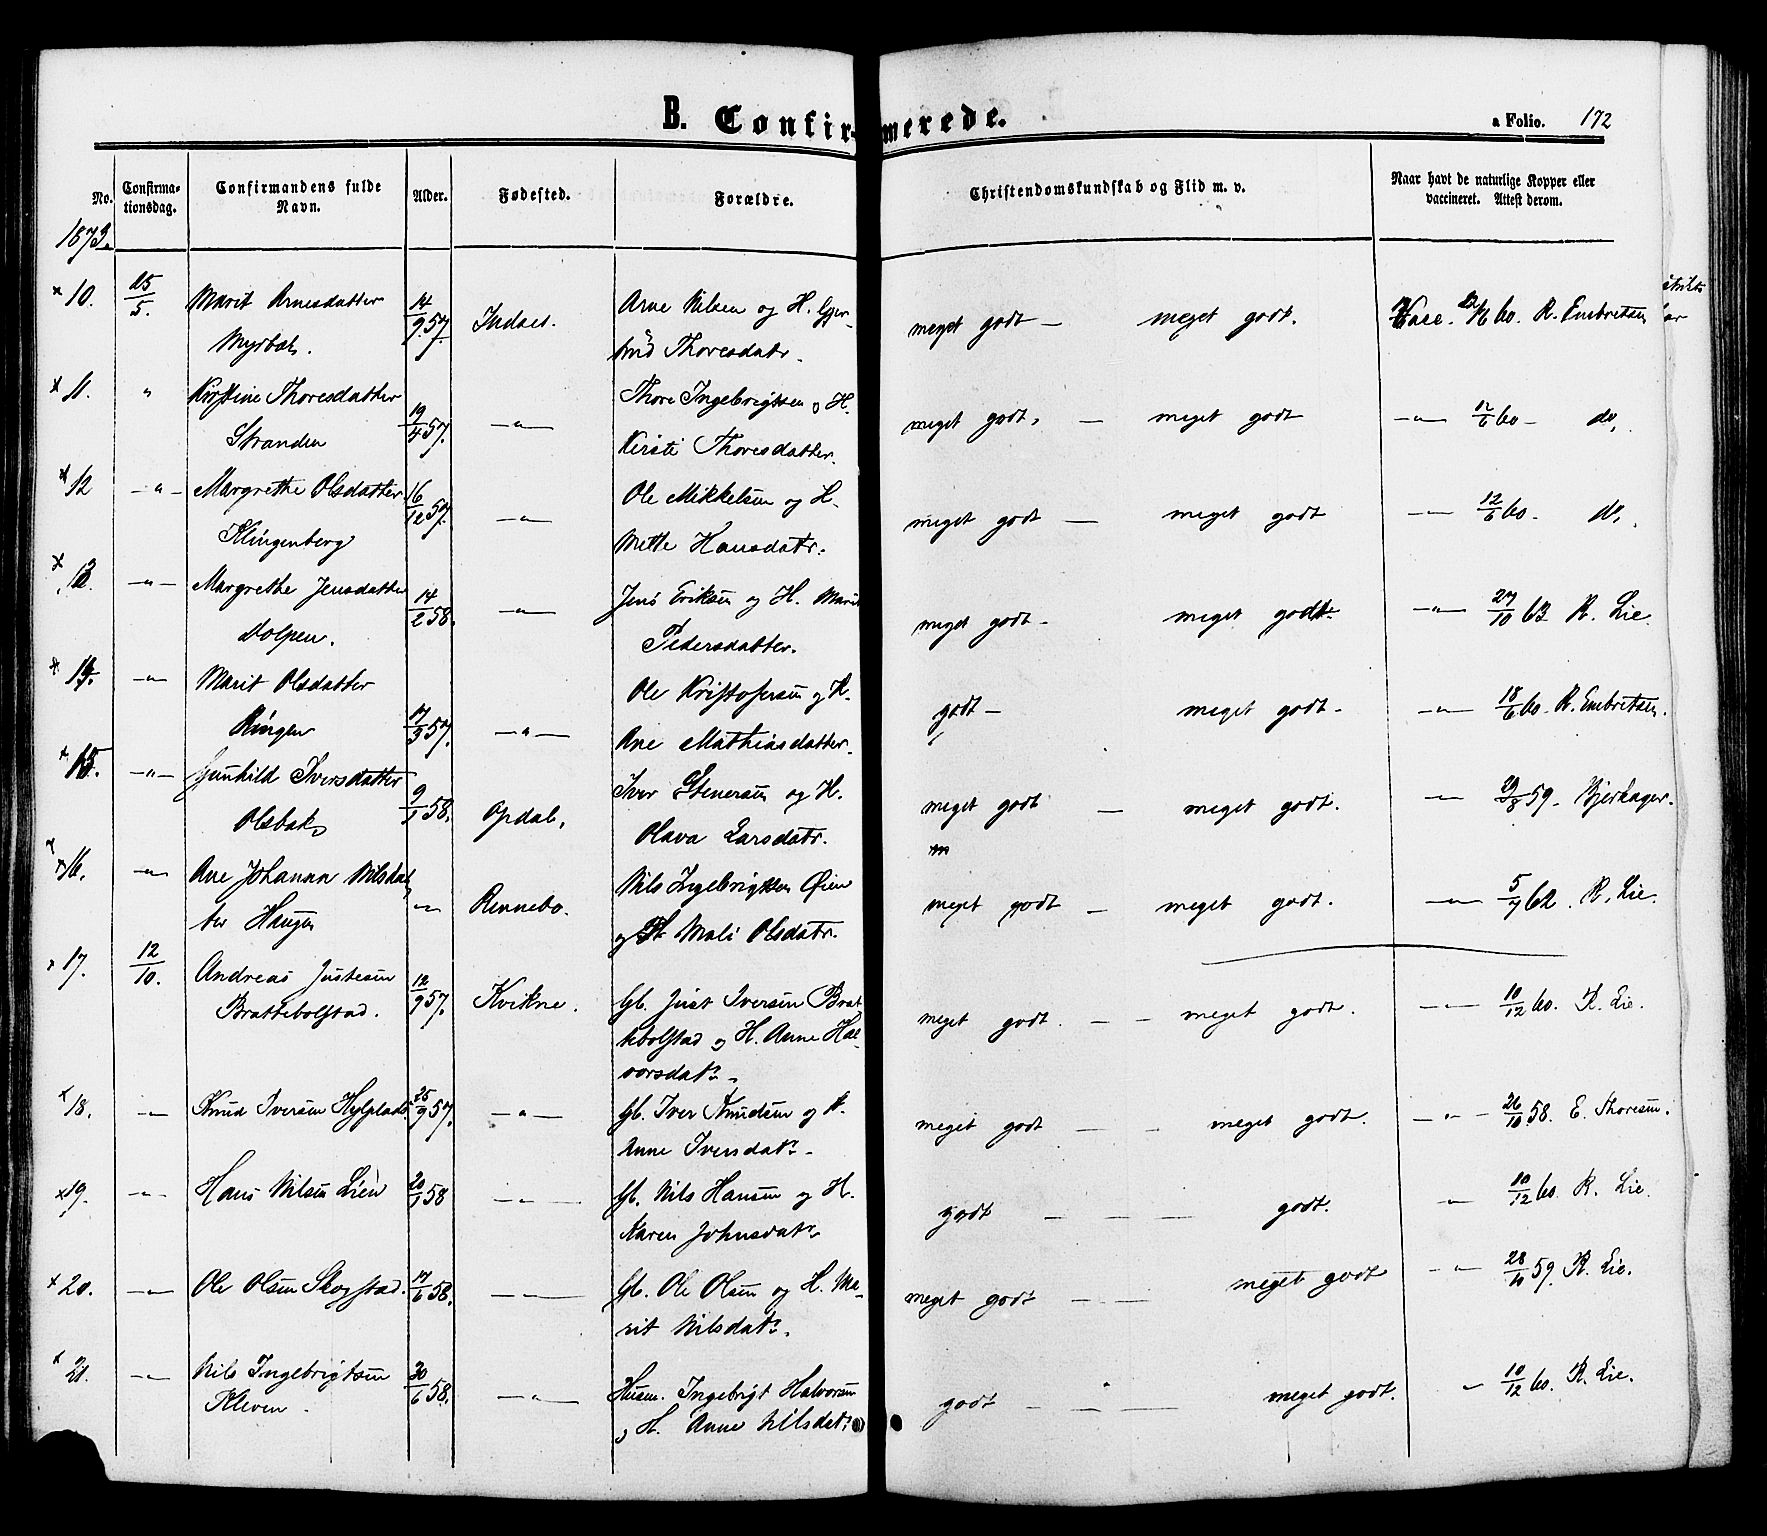 B. Confirmerede.
a Folio. 172
No. Confirmationsdag. Confirmandens fulde Navn. Alder. Fødested. Forældre. Christendomskundskab og Flid m. v. Naar havt de naturlige Kopper eller vaccineret. Attest derom.
1873.
x 10. 25/5. Marit Arnesdatter 14/9 57. Indset. Arne Nilsen og H. Gjer- meget godt — meget godt. Vacc. 12/6 60. R. Embretsen
Myrbak. trud Thoresdatr.
x 11. " Kirstine Thoresdatter 19/4 57. —"— Thore Ingebrigtsen og H. meget godt. — meget godt —"— 12/6 60 — do.
Stranden Kirsti Thoresdatter.
x 12 —"— Margrethe Olsdatter 16/12 57. —"— Ole Mikkelsen og H. meget godt — meget godt —"— 12/6 60 — do.
Klingenberg Mette Hansdatr.
x 13. —"— Margrethe Jensdatter 14/2 58. —"— Jens Eriksen og H. Marit meget godt — meget godt. —"— 27/10 63 R. Lie.
Volpen. Pedersdatter.
x 14. —"— Marit Olsdatter 17/3 57. —"— Ole Kristofersen og H. godt — meget godt. —"— 18/6 60. R. Embretsen.
Ringen Ane Mathiasdatter.
x 15. —"— Gunhild Iversdatter 9/1 58. Opdal. Iver Stenersen og H. meget godt — meget godt. —"— 29/8 59. Bjerkager.
Olsbak Olava Larsdatr.
x 16. —"— Ane Johanna Nilsdat- —"— Rennebo. Nils Ingebrigtsen Øien meget godt — meget godt. —"— 5/7 62. R. Lie.
ter Haugen og H. Mali Olsdatr.
x 17. 12/10. Andreas Justesen 12/9 57. Kvikne. Gb. Just Iversen Brat- meget godt. — — meget godt. —"— 10/12 60. R. Lie.
Brattebolstad. tebolstad og H. Anne Hal-
vorsdatr. —
x 18. —"— Knud Iversen 25/9 57. —"— Gb. Iver Knudsen og H. meget godt — — meget godt. —"— 26/10 58. E. Thoresen.
Anne Iversdatr. —
x 19. —"— Hans Nilsen Lien 20/1 58 —"— Gb. Nils Hansen og H. godt — — — godt. —"— 10/12 60. R. Lie.
Karen Johnsdatr
x 20. —"— Ole Olsen Skogstad. 17/6 58. —"— Gb. Ole Olsen og H. Ma- meget godt — — meget godt —"— 28/11 59. R. Lie.
rit Nilsdatr.
x 21. —"— Nils Ingebrigtsen 30/6 58. —"— Husm. Ingebrigt Halvorsen godt — — — meget godt. —"— 10/12 60. R. Lie.
Kleven. og H. Anne Nilsdatr